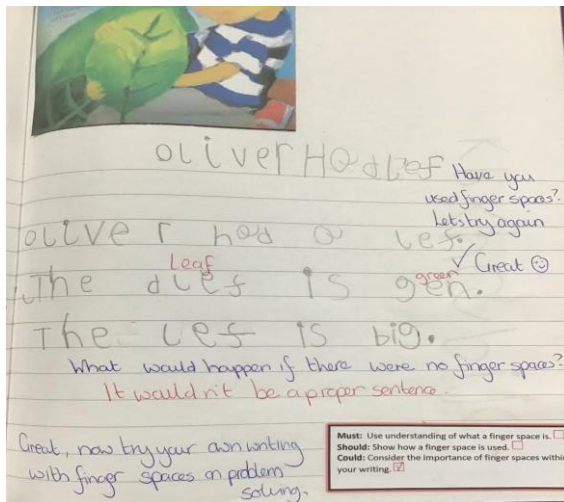 oLiver HadLef
Have you
used finger spaces?
Lets try again
oLIVer had a Lef.
✓ Great ☺
Leaf
green
The dLef is gen.
The Lef is big.
What would happen if there were no finger spaces?
It wouldn't be a proper sentence.
Great, now try your own writing
with finger spaces on problem
solving.
Must: Use understanding of what a finger space is. ☐
Should: Show how a finger space is used. ☐
Could: Consider the importance of finger spaces within
your writing. ☑